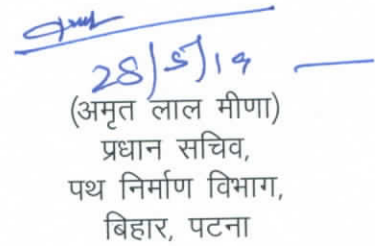 28/5/19
(अमृत लाल मीणा)
प्रधान सचिव,
पथ निर्माण विभाग,
बिहार, पटना